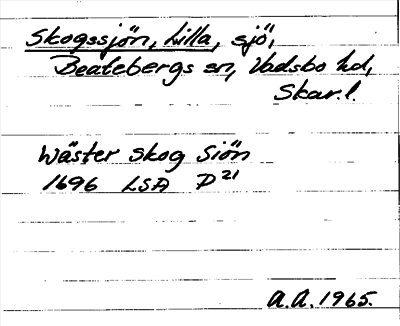 Skogssjön, Lilla, sjö,
Beatebergs sn, Vadsbo hd,
Skar.l.
Wäster skog Siön
1696 LSA P21
A.A. 1965.